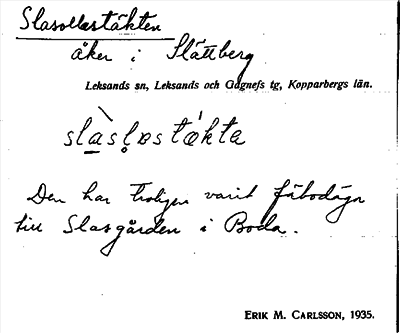 Slasollastäkten
åker i Slättberg
Leksands sn, Leksands och Gagnefs tg, Kopparbergs län.
slàslɒstǽkta
Den har troligen varit fäbodäga
till Slasgården i Boda.
ERIK M. CARLSSON, 1935.